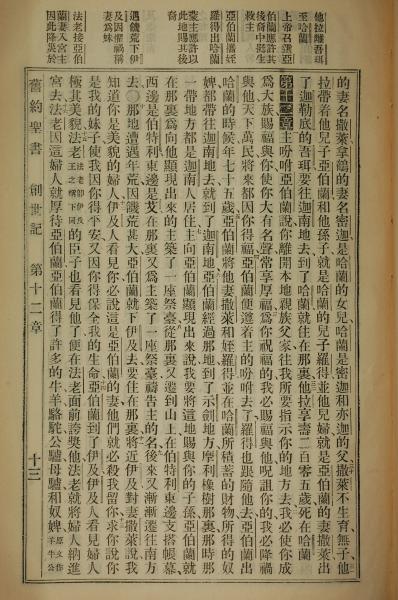 他拉攜吾珥
至哈蘭
上帝召選亞
伯蘭應許其
後裔中挺生
救主
亞伯蘭攜姪
羅得出哈蘭
蒙主應許以
此地賜其後
裔
遇饑荒下伊
及因懼禍稱
妻爲妹
法老接亞伯
蘭妻入宮主
因此降災於
的妻名撒萊拿鶴的妻名密迦是哈蘭的女兒哈蘭是密迦和亦迦的父撒萊不生育無子他
拉帶着他兒子亞伯蘭和他孫子就是哈蘭的兒子羅得並他兒婦就是亞伯蘭的妻撒萊出
了迦勒底的吾珥要往迦南地去到了哈蘭就住在那裏他拉享壽二百零五歲死在哈蘭
第十二章主吩咐亞伯蘭說你離開本地親族父家往我所要指示你的地方去我必使你成
爲大族賜福與你使你大有名聲常享厚福爲你祝福的我必賜福與他咒詛你的我必降禍
與他天下萬民將來都因你得福亞伯蘭便遵着主的吩咐去了羅得也跟隨他去亞伯蘭出
哈蘭的時候年七十五歲亞伯蘭將他妻撒萊和姪羅得並在哈蘭所積蓄的財物所得的奴
婢都帶往迦南地去就到了迦南地亞伯蘭經過那地到了示劍地方摩利橡樹那裏那時那
一帶地方都是迦南人居住主向亞伯蘭顯現出來說我要將這地賜與你的子孫亞伯蘭就
在那裏爲向他顯現出來的主築了一座祭臺從那裏又遷到山上在伯特利東邊支搭帳幕
西邊是伯特利東邊是艾在那裏又爲主築了一座祭臺禱告主的名後來又漸漸遷往南方
去○那地遭遇年荒因饑荒甚大亞伯蘭就下伊及去要住在那裏將近伊及對妻撒萊說我
知道你是美貌的婦人伊及人看見你必說這是亞伯蘭的妻他們就必殺我留你求你說你
是我的妹子使我因你得平安又因你得保全我的生命亞伯蘭到了伊及伊及人看見婦人
極其美貌法老的臣子也看見他了便在法老面前誇獎他法老就將婦人納進
宮去法老因這婦人就厚待亞伯蘭亞伯蘭得了許多的牛羊駱駝公驢母驢和奴婢
舊約聖書 創世記 第十二章 十三